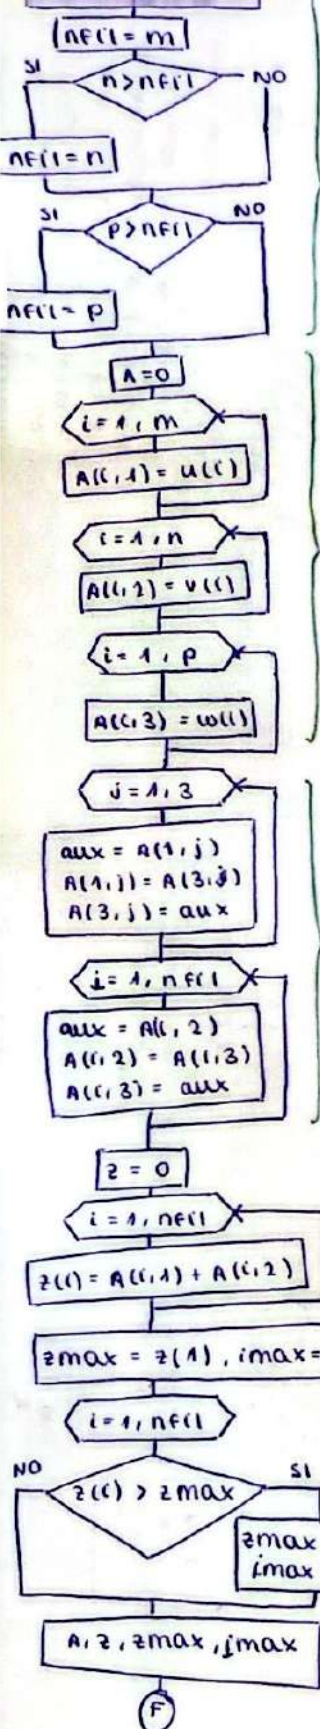 nfil = m
SI
n > nfil
NO
nfil = n
SI
p > nfil
NO
nfil = p
A = 0
i = 1, m
A(i, 1) = u(i)
i = 1, n
A(i, 2) = v(i)
i = 1, p
A(i, 3) = w(i)
j = 1, 3
aux = A(1, j)
A(1, j) = A(3, j)
A(3, j) = aux
i = 1, nfil
aux = A(i, 2)
A(i, 2) = A(i, 3)
A(i, 3) = aux
z = 0
i = 1, nfil
z(i) = A(i, 1) + A(i, 2)
zmax = z(1), imax =
i = 1, nfil
NO
z(i) > zmax
SI
zmax
imax
A, z, zmax, imax
F